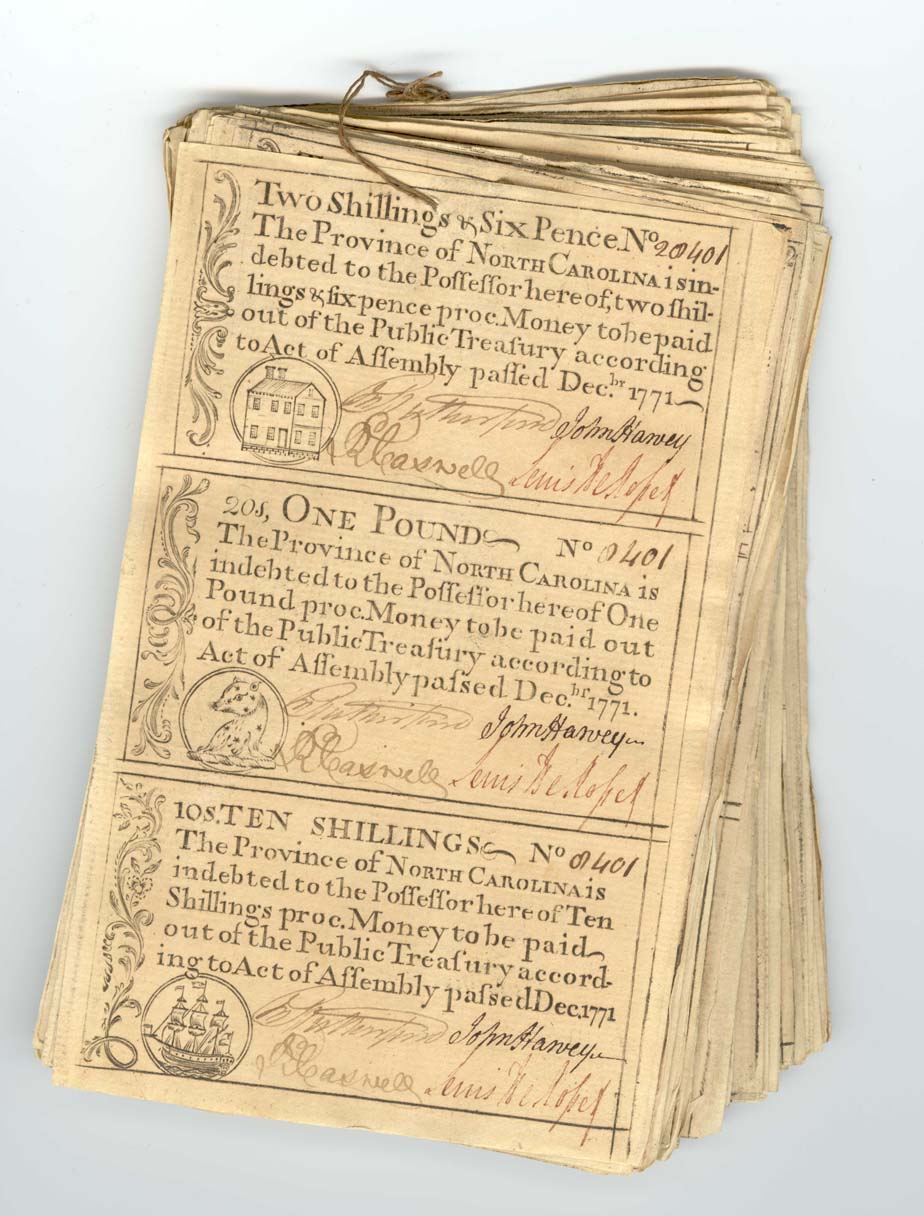 Two Shillings & Six Pence. No. 28401
The Province of NORTH CAROLINA is in-
debted to the Poſſeſſor here of, two ſhil-
lings & ſix pence proc. Money to be paid
out of the Public Treaſury according
to Act of Aſſembly paſſed Dec.br 1771
John Harvey
R Caswell
Lewis De Rosset
20s, ONE POUND No 8401
The Province of NORTH CAROLINA is
indebted to the Poſſeſſor here of One
Pound proc. Money to be paid out
of the Public Treaſury according to
Act of Aſſembly paſſed Dec.br 1771.
John Harvey
R Caswell
Lewis De Rosset
10s. TEN SHILLINGS No 8401
The Province of NORTH CAROLINA is
indebted to the Poſſeſſor here of Ten
Shillings proc. Money to be paid
out of the Public Treaſury accord-
ing to Act of Aſſembly paſſed Dec. 1771
John Harvey
R Caswell
Lewis De Rosset